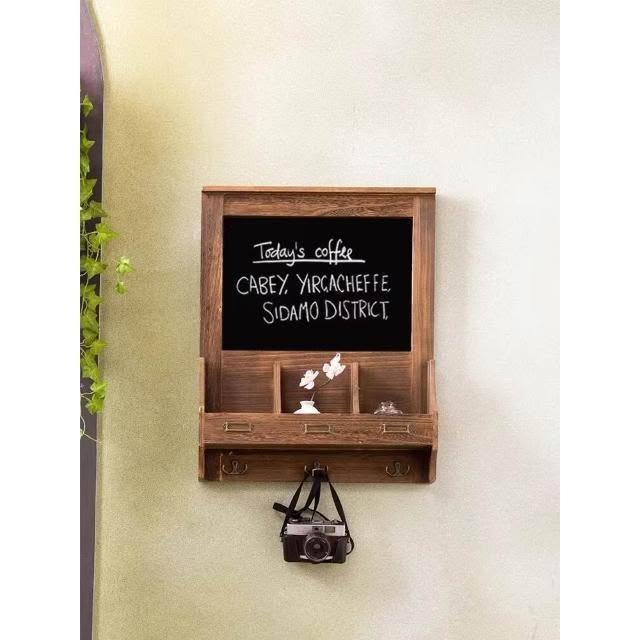 Today's coffee
CABEY, YIRGACHEFFE,
SIDAMO DISTRICT,